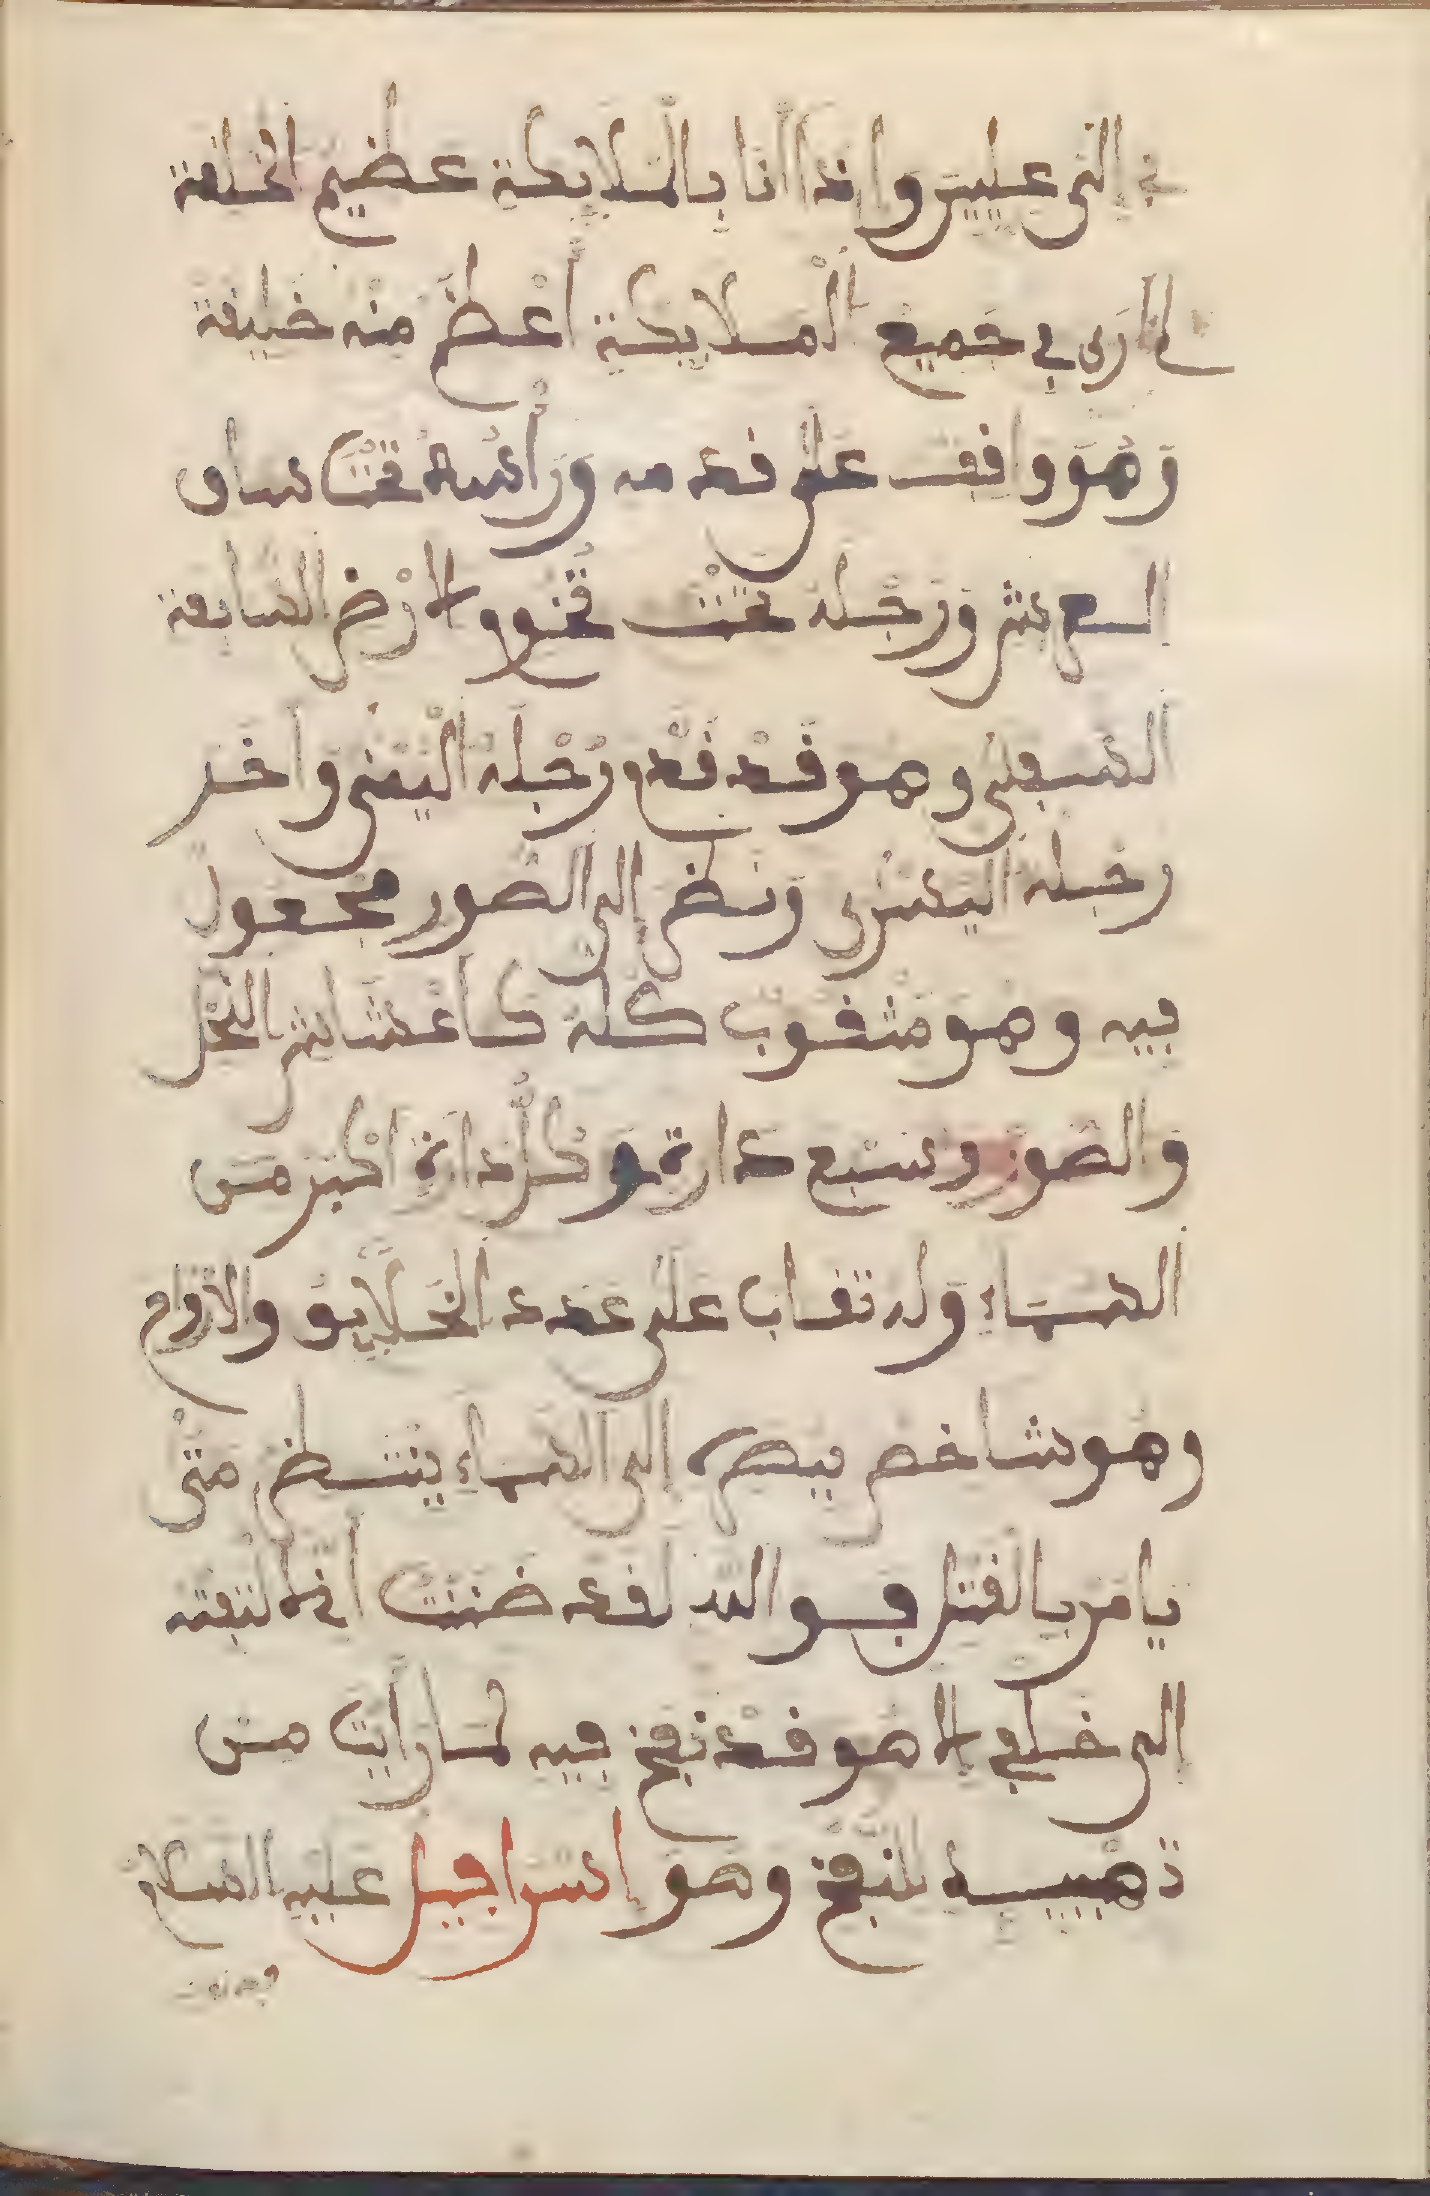 إلى عليين وإذا أنا بالملايكة عضيم الخلفة
لم ارى في جميع الملايكة أعظم منه خليفة
وهو واقف على قدمه ورأسه تحت ساق
العرش ورجله تحت تخوم الارض السابعة
السبعلى وهو قد قدم رجله اليمنى واخر
رجله اليسرى ونظر إلى الصور مجعول
فيه وهو مثقوب كله كاعشاش النحل
والصور وسبع دارة وكل دارة اكبر من
السماء وله تقاب على عدد الخلايق والارواح
وهو شاخص ببصره إلى السماء ينتظر متى
يامر بالقتل فوالله لقد ضننت أنه التفته
إلى خلفي إلا هو قد نفخ فيه لما رأيت من
ذهيبه للنفخ وهو إسرافيل عليه السلام